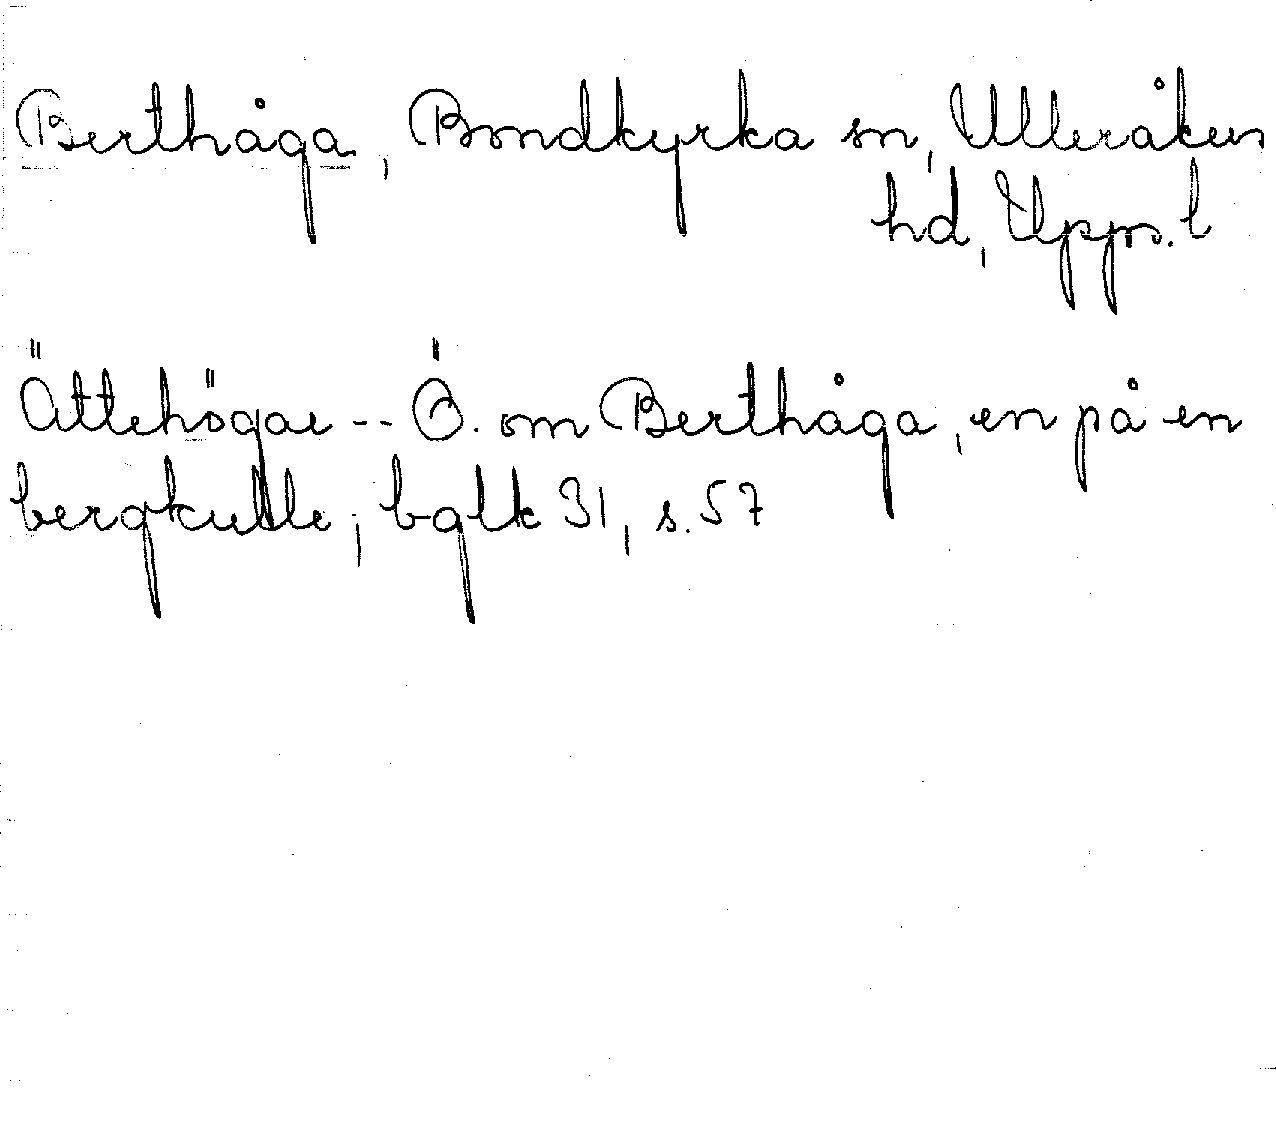 Berthåga, Bondkyrka sn, Ulleråkers
hd, Upps. l
Ättehögar -- Ö. om Berthåga, en på en
bergkulle; bglk 31, s. 57